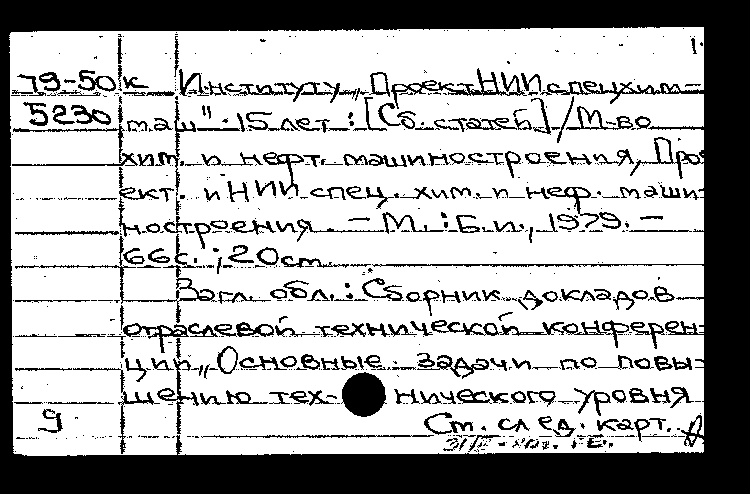 1.
79-50к Институту „ПроектНИИспецхим-
5230 маш". 15 лет : [Сб. статей] / М-во
хим. и нефт. машиностроения, Про
ект. и НИИ спец. хим. и неф. маши-
ностроения. – М. : Б.и., 1979. –
66с. ; 20см.
Загл. обл. : Сборник докладов
отраслевой технической конферен-
ции „Основные задачи по повы-
шению тех- нического уровня
9 Ст. след. карт.